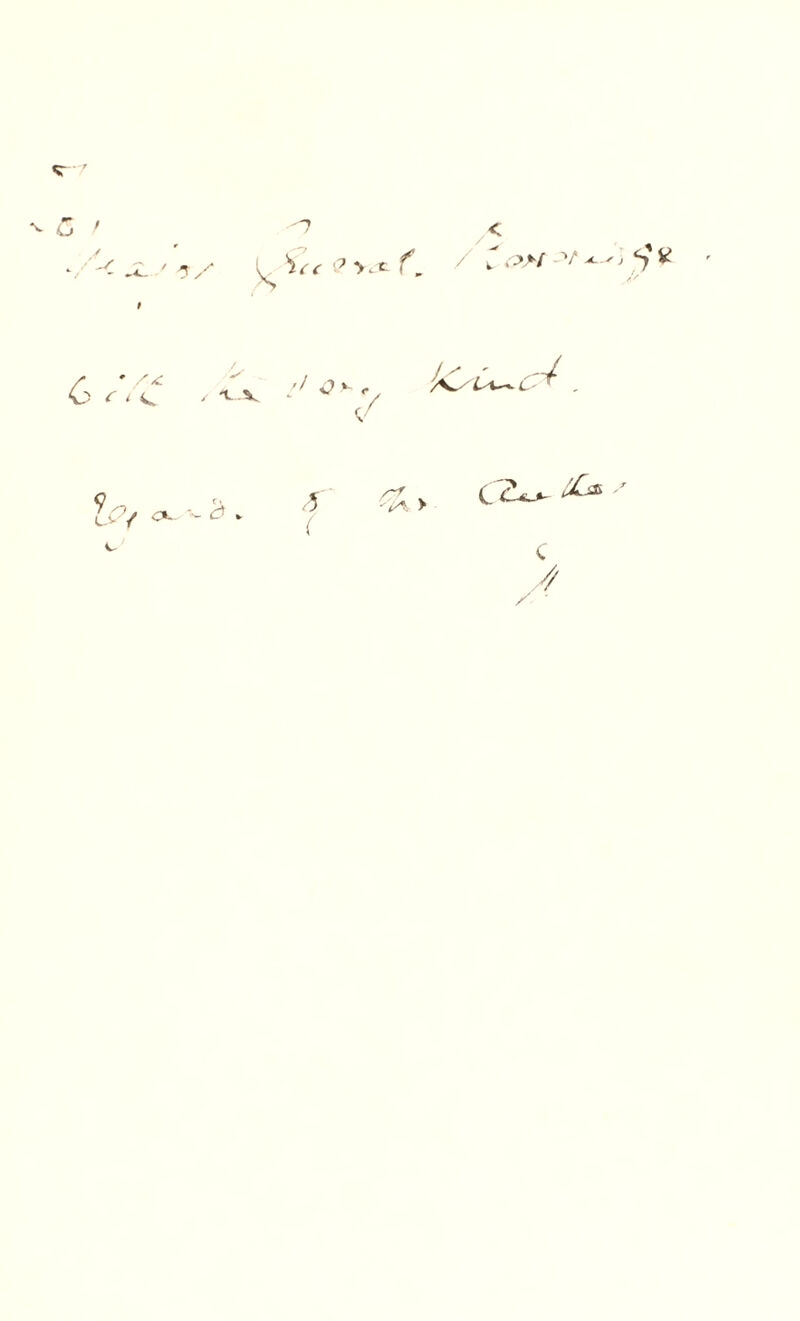 To
Major General
With the very Kind
regards of the Author